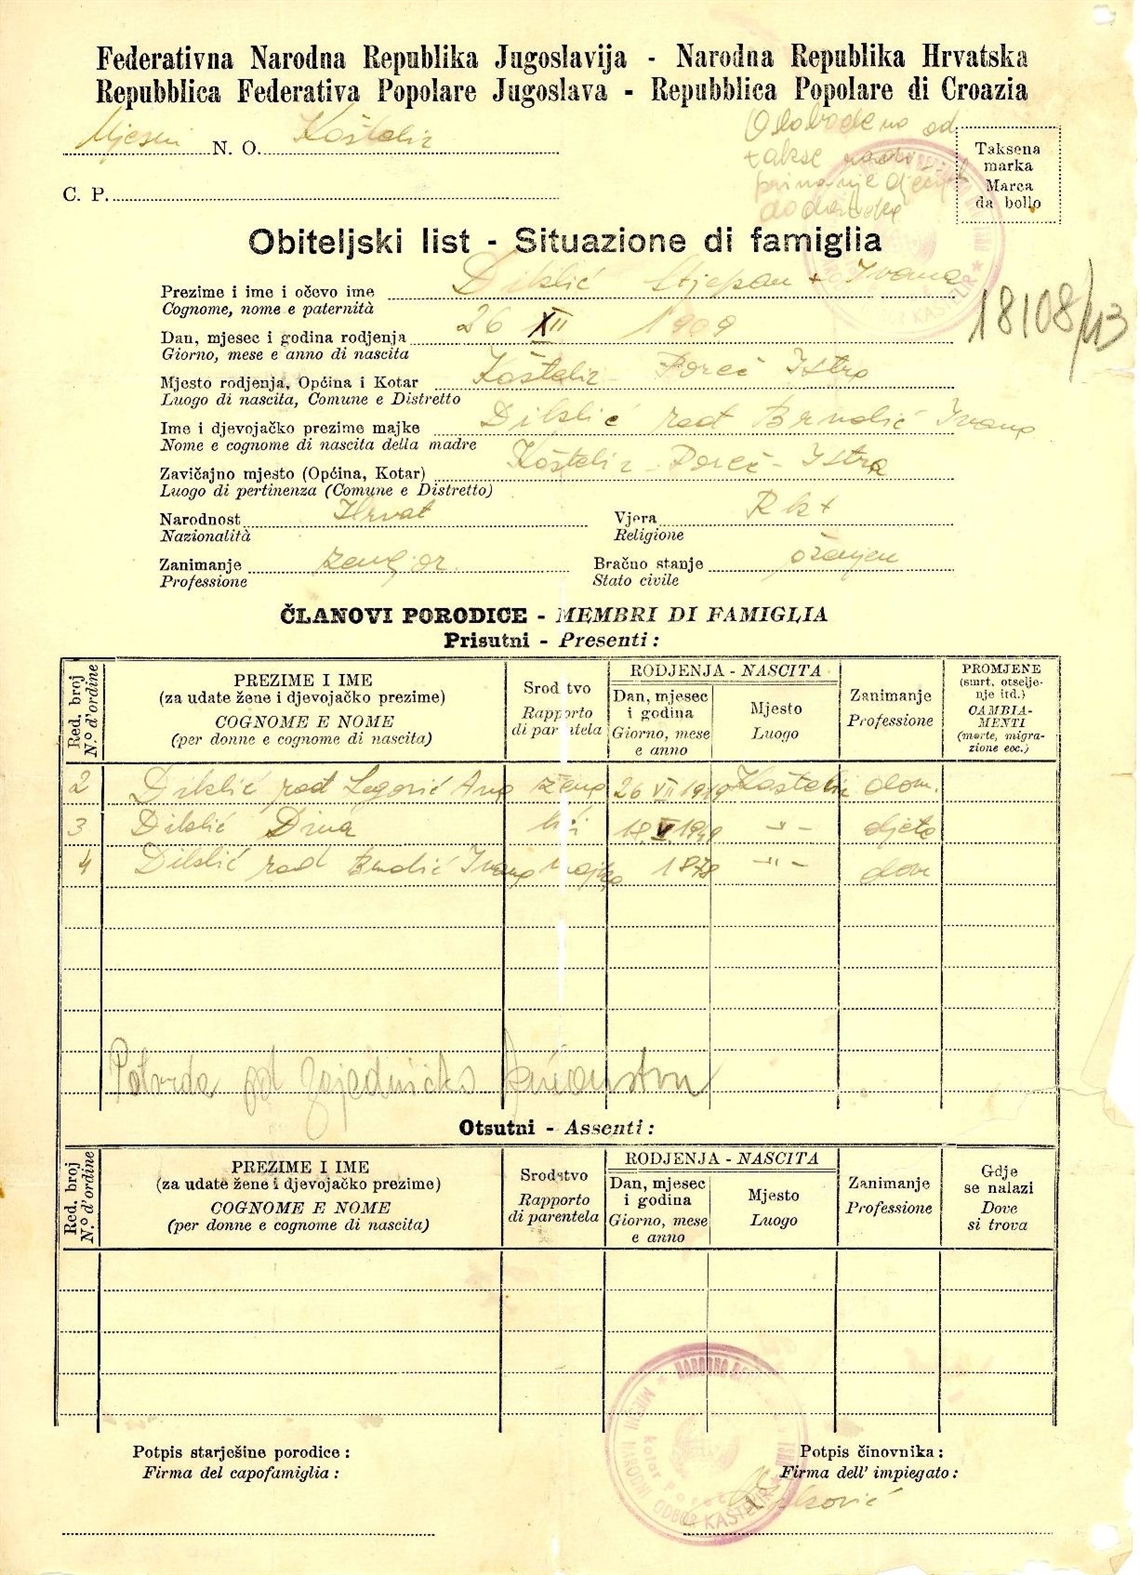 Federativna Narodna Republika Jugoslavija - Narodna Republika Hrvatska
Repubblica Federativa Popolare Jugoslava - Repubblica Popolare di Croazia
Mjesni N. O. Kaštelir
Oslobođeno od
takse radi
primanje dječjeg
dodatka
Taksena
marka
Marca
da bollo
C. P.
Obiteljski list - Situazione di famiglia
Prezime i ime i očevo ime Diklić Stjepan + Ivana
Cognome, nome e paternità
18108/13
Dan, mjesec i godina rodjenja 26 XII 1909
Giorno, mese e anno di nascita
Mjesto rodjenja, Općina i Kotar Kaštelir Poreč Istra
Luogo di nascita, Comune e Distretto
Ime i djevojačko prezime majke Diklić rođ Ivana
Nome e cognome di nascita della madre
Zavičajno mjesto (Općina, Kotar) Kaštelir - Poreč - Istra
Luogo di pertinenza (Comune e Distretto)
Narodnost Hrvat Vjera Rkt
Nazionalità Religione
Zanimanje Bračno stanje oženjen
Professione Stato civile
ČLANOVI PORODICE - MEMBRI DI FAMIGLIA
Prisutni - Presenti:
Red. broj
N.º d'ordine
PREZIME I IME
(za udate žene i djevojačko prezime)
COGNOME E NOME
(per donne e cognome di nascita)
Srodstvo
Rapporto
di parentela
RODJENJA - NASCITA
Dan, mjesec
i godina
Giorno, mese
e anno
Mjesto
Luogo
Zanimanje
Professione
PROMJENE
(smrt, otselje-
nje itd.)
CAMBIA-
MENTI
(morte, migra-
zione ecc.)
2 Diklić rođ Legović Ana žena 26 VII 1919 Kaštelir dom.
3 Diklić Dina kći 18 V 1949 -"- djete
4 Diklić rođ Ivana majka 1878 -"- dom
Potvrda od zajedničko
Otsutni - Assenti:
Red. broj
N.º d'ordine
PREZIME I IME
(za udate žene i djevojačko prezime)
COGNOME E NOME
(per donne e cognome di nascita)
Srodstvo
Rapporto
di parentela
RODJENJA - NASCITA
Dan, mjesec
i godina
Giorno, mese
e anno
Mjesto
Luogo
Zanimanje
Professione
Gdje
se nalazi
Dove
si trova
MJESNI NARODNI ODBOR KAŠTELIR
Potpis starješine porodice:
Firma del capofamiglia:
Potpis činovnika:
Firma dell' impiegato: